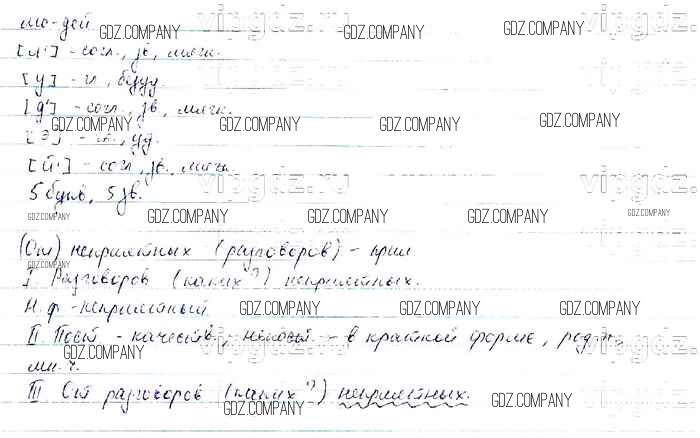 лю-дей
[л'] - согл., зв., мягк.
[у] - гл, безуд
[д'] - согл., зв., мягк.
[э] - гл., уд.
[й'] - согл, зв., мягк.
5 букв, 5 зв.
(От) неприятных (разговоров) - прил
I Разговоров (каких?) неприятных.
Н.ф - неприятный
II Пост - качеств., непост - в краткой форме, род. п.,
мн. ч.
III От разговоров (каких?) неприятных.
GDZ.COMPANY
vipgdz.ru